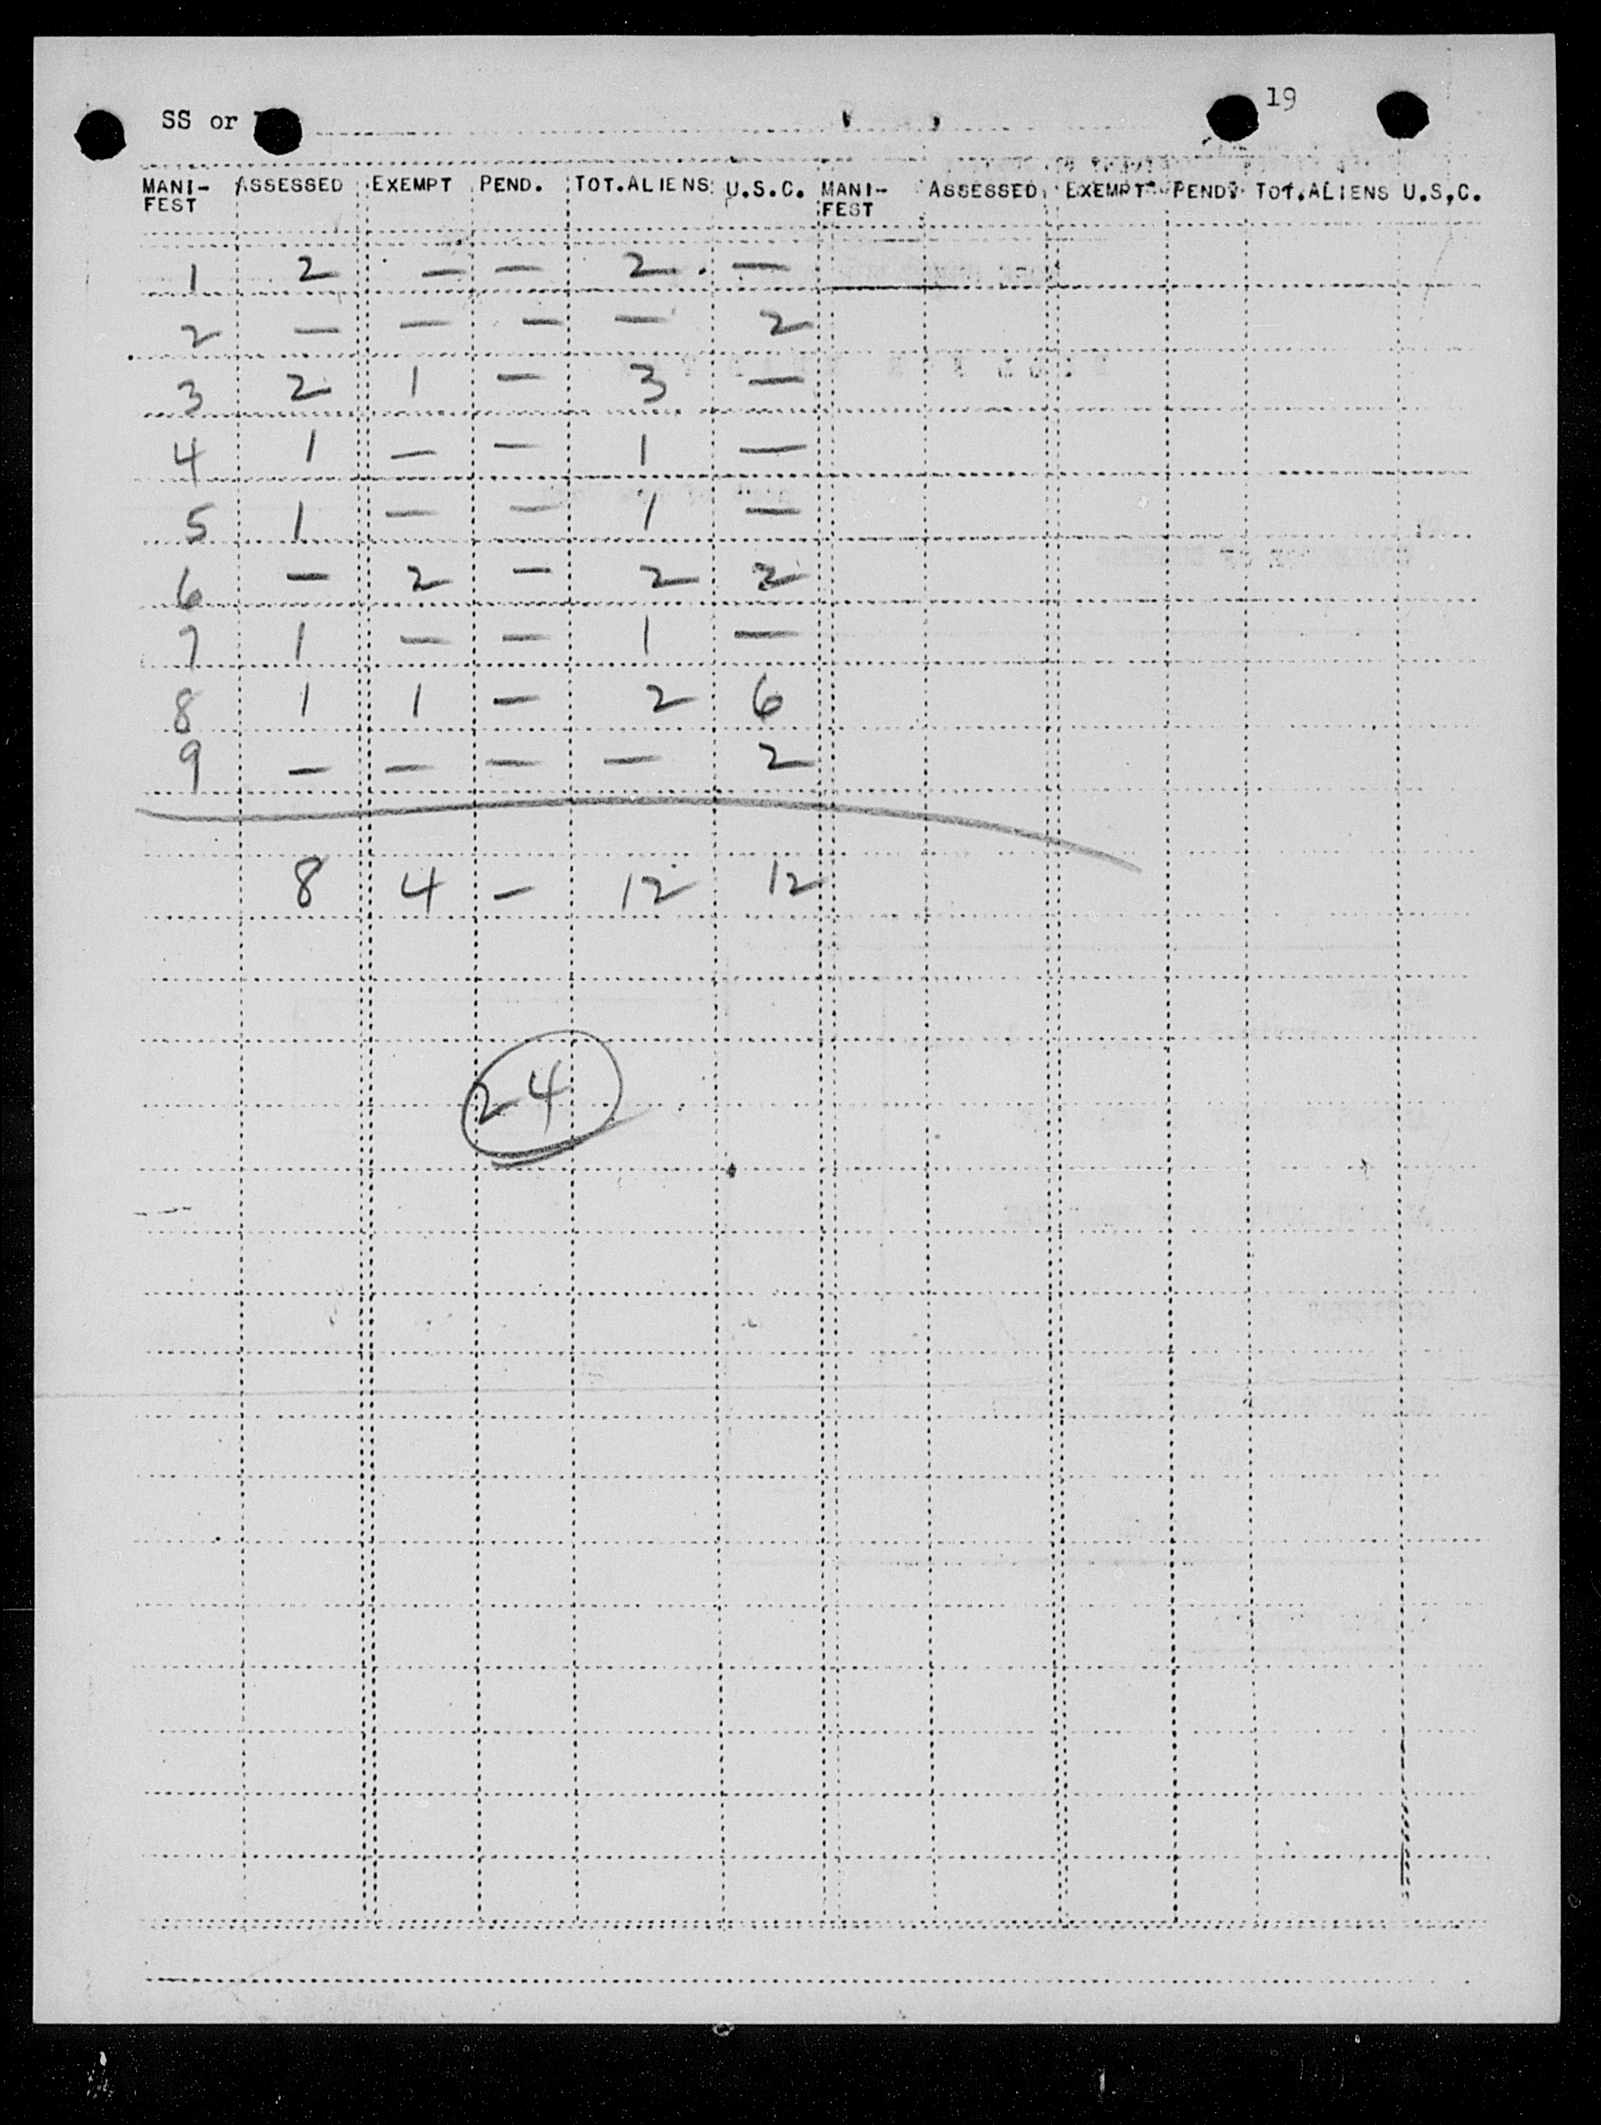 19
SS or
MANI-FEST ASSESSED EXEMPT PEND. TOT.ALIENS U.S.C. MANI-FEST ASSESSED EXEMPT PEND. TOT.ALIENS U.S.C.
1 2 — — 2 —
2 — — — — 2
3 2 1 — 3 —
4 1 — — 1 —
5 1 — — 1 —
6 — 2 — 2 2
7 1 — — 1 —
8 1 1 — 2 6
9 — — — — 2
8 4 — 12 12
24